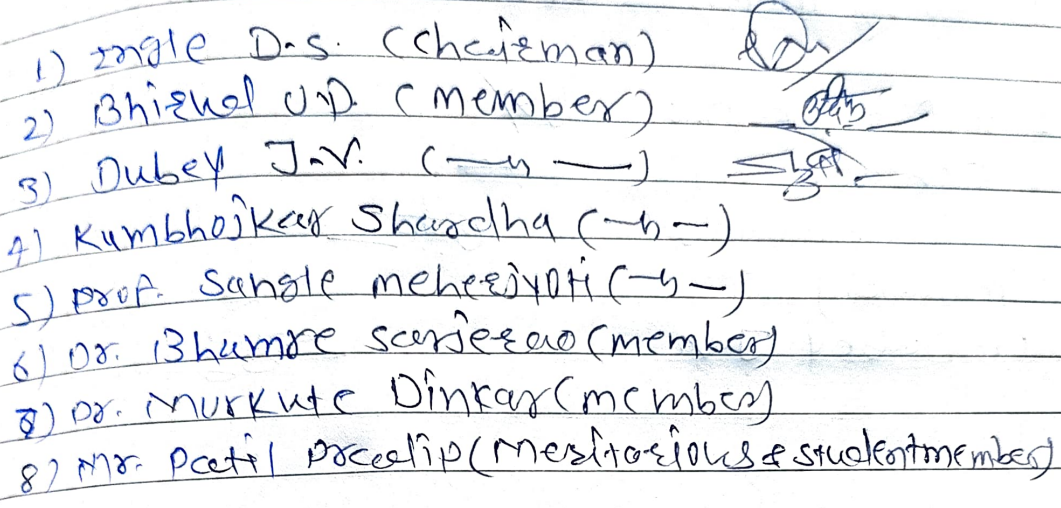 1) Ingle D.S. (Chairman)
2) Bhirud U.D. (member)
3) Dubey J.V. ( —〃— )
4) Kumbhojkar Shardha ( —〃— )
5) Prof. Sangle meherjyoti ( —〃— )
6) Dr. Bhamre sarjerao (member)
7) Dr. Murkute Dinkar (member)
8) Mr. Patil Pradip (Meritorious & student member)